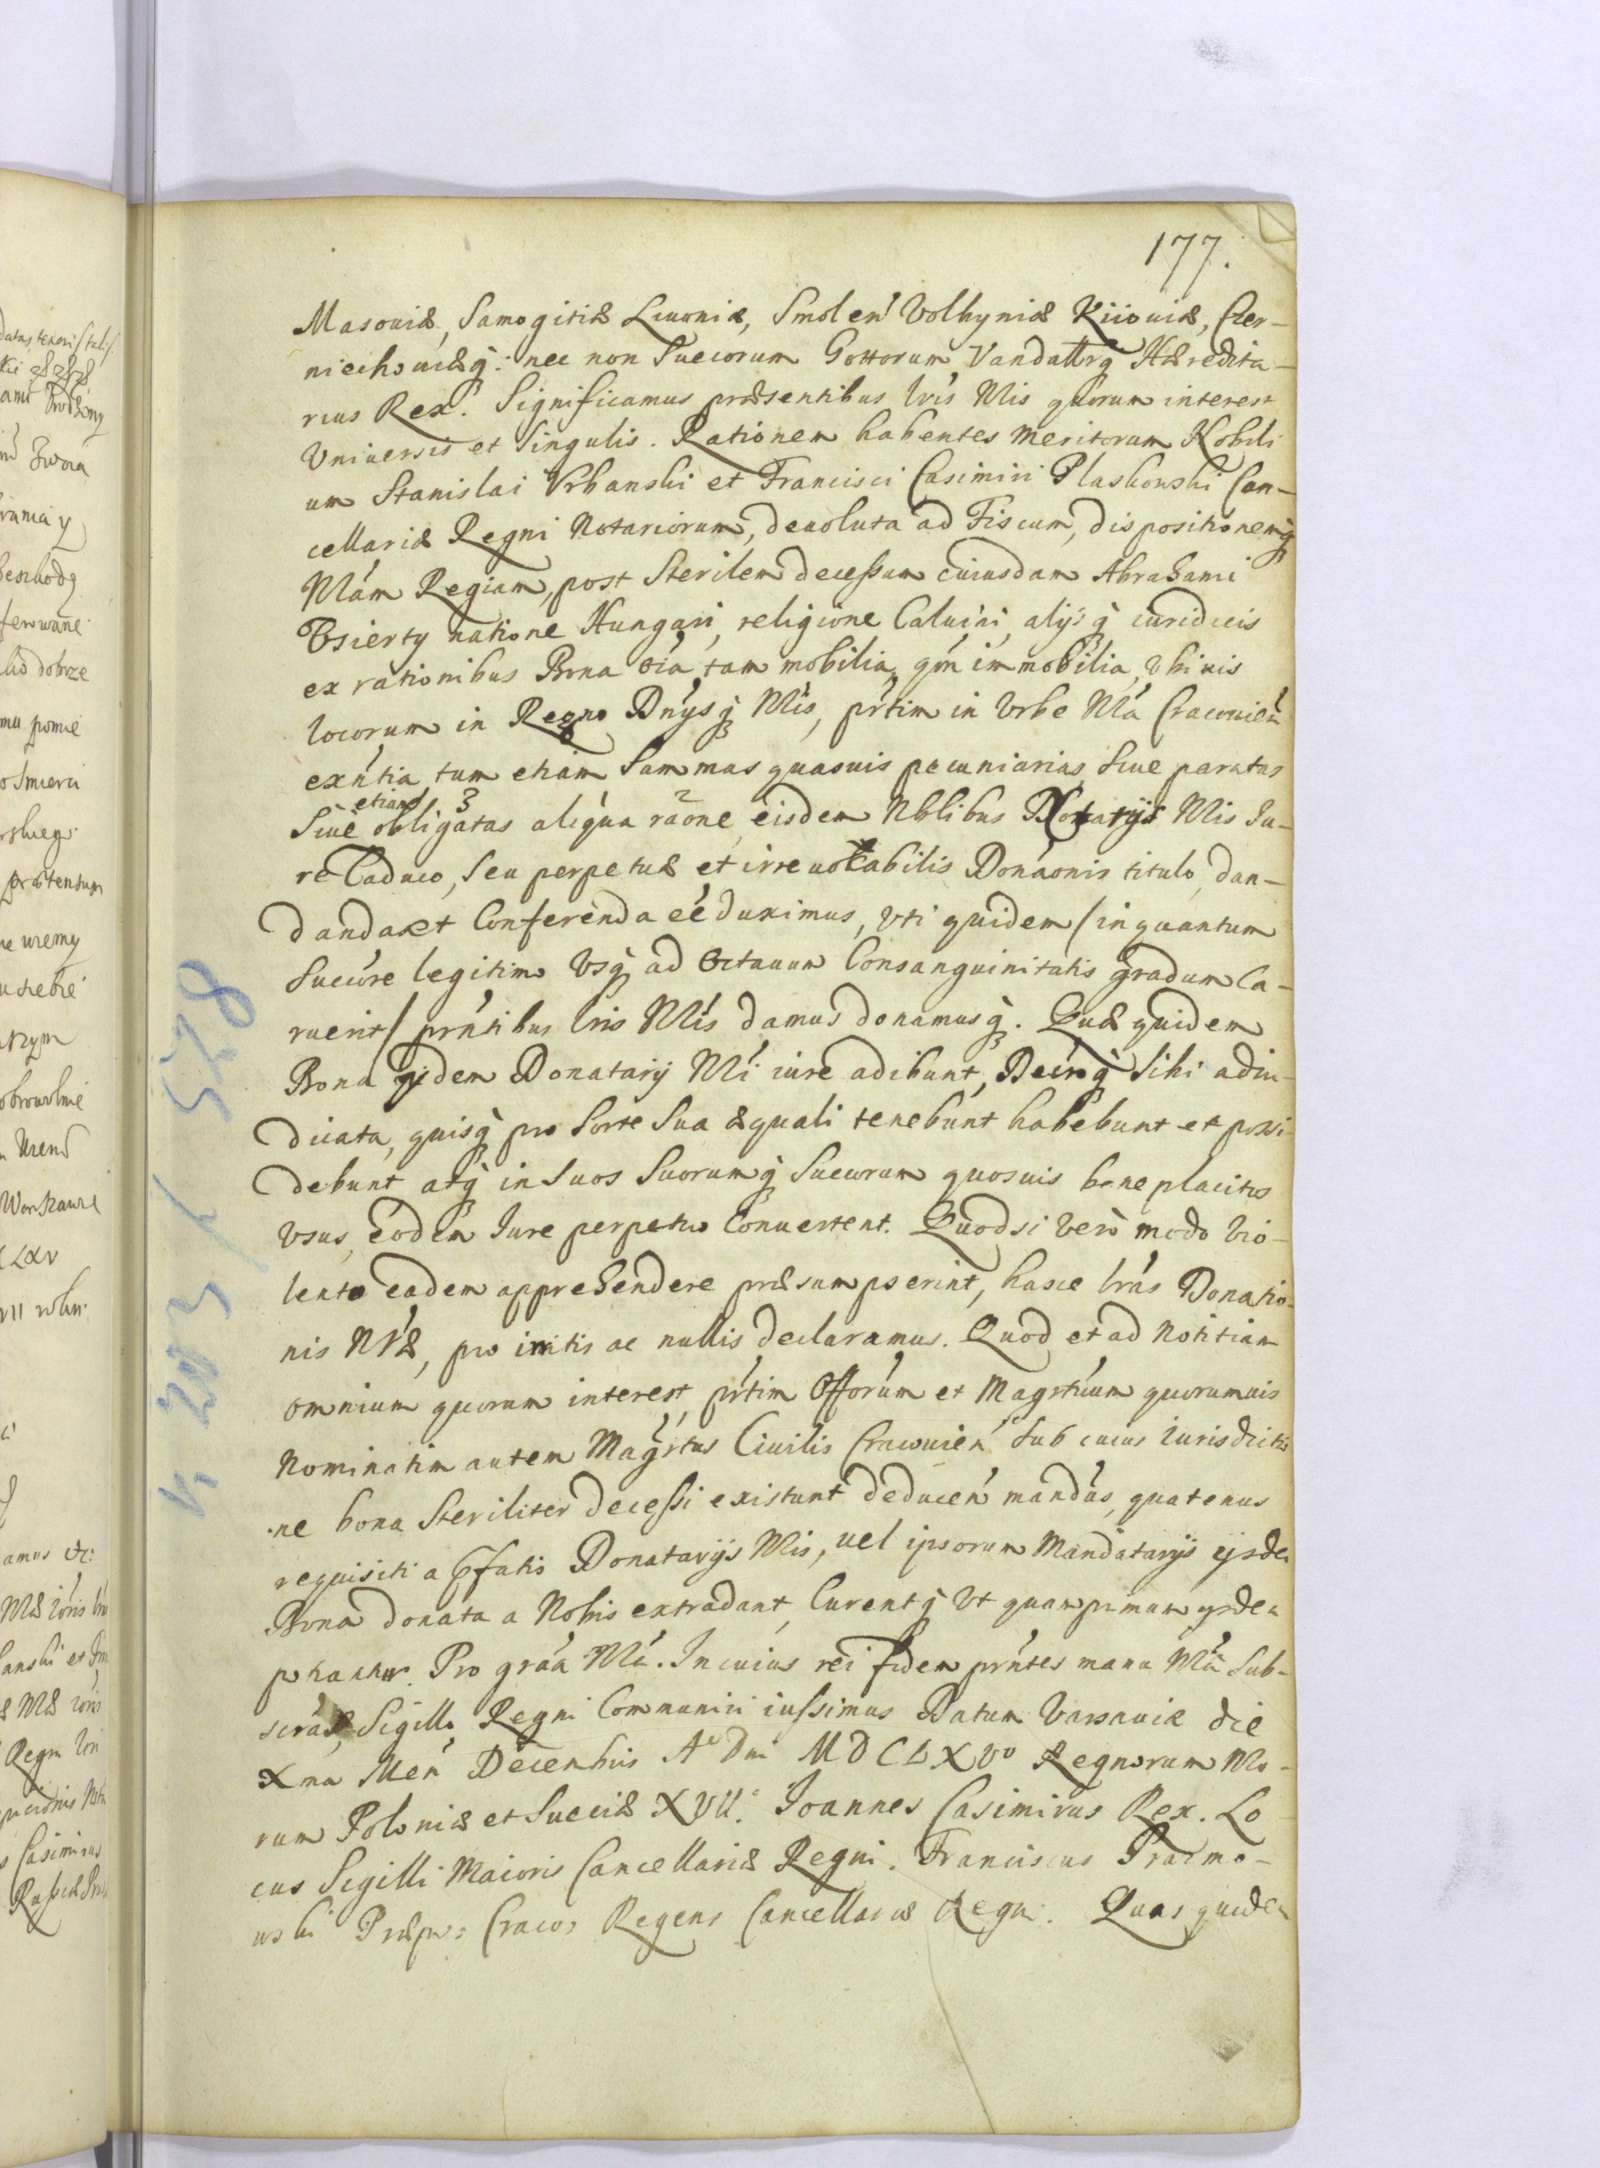 177.
Masouiæ, Samogitiæ Liuoniæ, Smolen̄ Volhyniæ Kiiouiæ, Czer-
niechouiæq̃: nec non Suecorum Gottorum Vandallrq̃ Hæredita-
rius Rex. Significamus præsentibus lris Nris quorum interest
Vniuersis et Singulis. Rationem habentes meritorum Nobili
um Stanislai Vrbanski et Francisci Casimiri Plaskowski Can-
cellariæ Regni Notariorum, deuoluta ad Fiscum, dispositionemq̃
Nrám Regiam, post Sterilem decessum cuiusdam Abrahami
natione Hungari, religione Caluini, alijsq̃ iuridicis
ex rationibus Bona oĩa, tam mobilia, qm̃ immobilia, vbiuis
locorum in Regno Dnysq̃ Nris, prtim in Vrbe Nra Cracouień
exn̄tia, tum etiam Summas quasuis pecuniarias, Siue paratas
etiam
Siue obligatas aliqua raõne, eisdem Nblibus Donatarijs Nris Ju-
re Caduco, Seu perpetuæ et irreuocabilis Donaonis titulo, dan-
danda et Conferenda eé duximus, vti quidem /inquantum
Succõre legitimo Vsq̃ ad Octauum Consanguinitatis gradum Ca-
ruerit/ prn̄tibus lris Nris damus donamusq̃. Quæ quidem
Bona ijdem Donatarij Nri iure adibunt, sibi adiu-
dicata, quisq̃ pro Sorte Sua æquali tenebunt habebunt et possi-
debunt atq̃ in Suos Suorumq̃ Succorum quosuis beneplacitos
Vsus, eodem Jure perpetuo Conuertent. Quodsi verò modo vio-
lento eadem apprehendere præsumpserint, hasce lrás Donatio-
nis Nræ, pro irritis ac nullis declaramus. Quod et ad notitiam
omnium quorum interest, prtim Offórum et Magrtũum quorumuis
Nominatim autem Magrtus Ciuilis Cracouień Sub cuius iurisdictio
ne bona Steriliter decessi existunt deduceń mandás, quatenus
requisiti a pfatis Donatarijs Nris, uel ipsorum Mandatarijs ijsdem
Bona donata a Nobis extradant, Curentq̃ Vt quamprimum ijsdem
potiantur. Pro graá Nrá. In cuius rei fidem prn̄tes manu Nrá Sub-
scras, Sigillo Regni Communiri iussimus Datum Varsauiæ die
Xma Meń Decembris Ao Dni MDCLXVo Regnorum Nro-
rum Poloniæ et Sueciæ XVII. Joannes Casimirus Rex. Lo
cus Sigilli Maioris Cancellariæ Regni. Franciscus Prazmo-
wski Præpo: Craco: Regens Cancellariæ Regni. Quas quidem